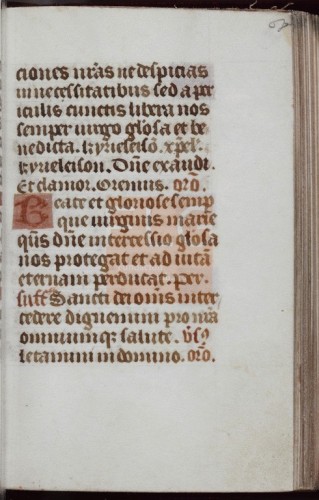 ciones nr̄as ne despicias
in necessitatibus sed a per
iculis cunctis libera nos
semper uirgo gl̄osa et be
nedicta. kyrieleisō. xp̄el.
kyrieleison. Dn̄e exaudi.
Et clamor. Oremus. or̄o.
Beate et gloriose semp
que uirginis marie
qs̄ dn̄e intercessio gl̄osa
nos protegat et ad uitā
eternam perducat. Per.
suff̄ Sancti dei om̄s inter
cedere dignemini pro nr̄a
omniumqꝫ salute. v̄sꝰ
letamini in domino. or̄o.